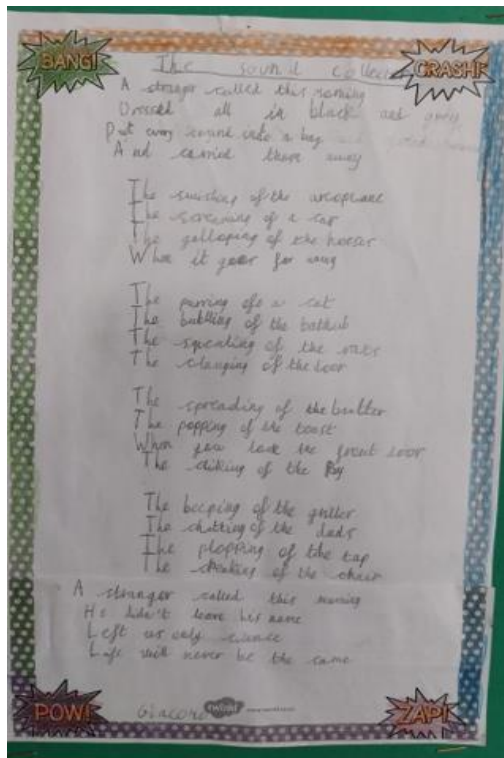 BANG!
CRASH!
The sound collec
A stranger called this morning
Dressed all in black and grey
Put every sound into a bag
And carried them away
The swishing of the aeroplane
The screaming of a car
The galloping of the horses
When it goes far away
The purring of a cat
The bubbling of the bathtub
The squeaking of the
The clanging of the door
The spreading of the butter
The popping of the toast
When you lock the front door
The of the
The beeping of the
The chatting of the dads
The plopping of the tap
The of the chair
A stranger called this morning
He didn't leave his name
Left us only silence
Life will never be the same
POW!
Giacomo
twinkl
ZAP!